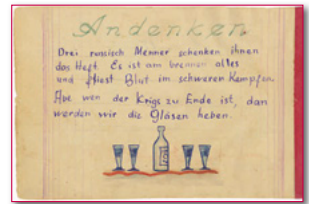 Andenken
Drei russisch Menner schenken ihnen
das Heft. Es ist am brennen alles
und fliest Blut im schweren Kampfen.
Abe wen der Krigs zu Ende ist, dan
werden wir die Gläsen heben.